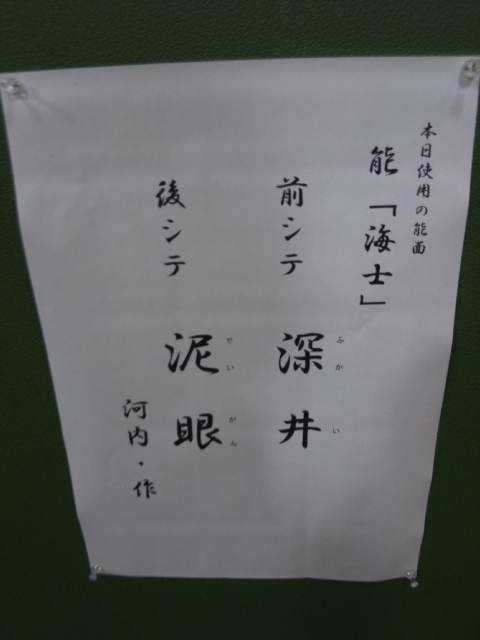 本日使用の能面
能「海士」
前シテ 深井
ふかい
後シテ 泥眼
でいがん
河内・作